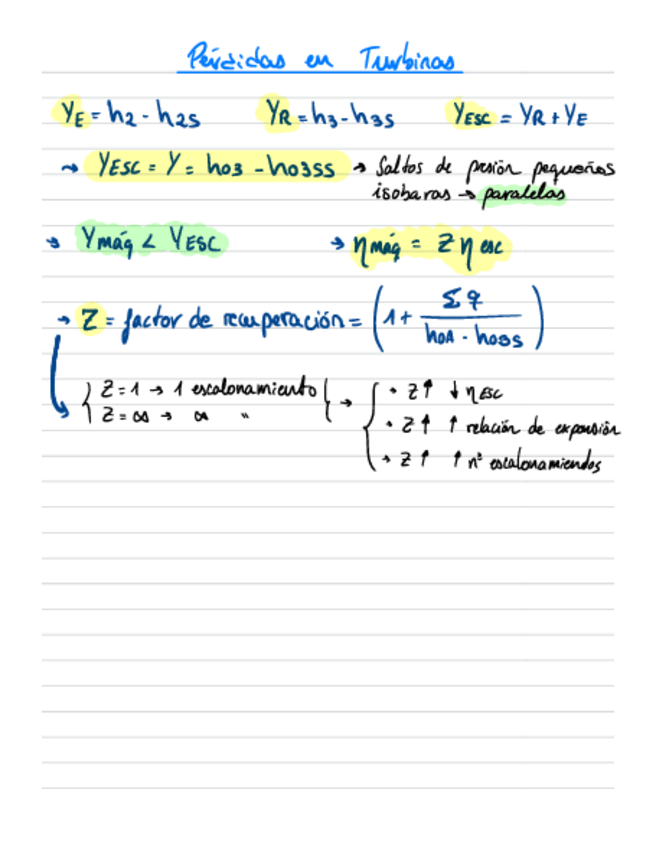 Pérdidas en Turbinas
YE = h2 - h2s YR = h3 - h3s YESC = YR + YE
→ YESC = Y = h03 - h03ss → Saltos de presión pequeños
isobaras → paralelas
→ Ymáq < YESC → ηmáq = Z ηesc
→ Z = factor de recuperación = (1 + Σq / (h01 - h03s))
{ Z = 1 → 1 escalonamiento } → { • Z↑ ↓ηESC
{ Z = ∞ → ∞ " • Z↑ ↑ relación de expansión
→ Z↑ ↑ nº escalonamientos